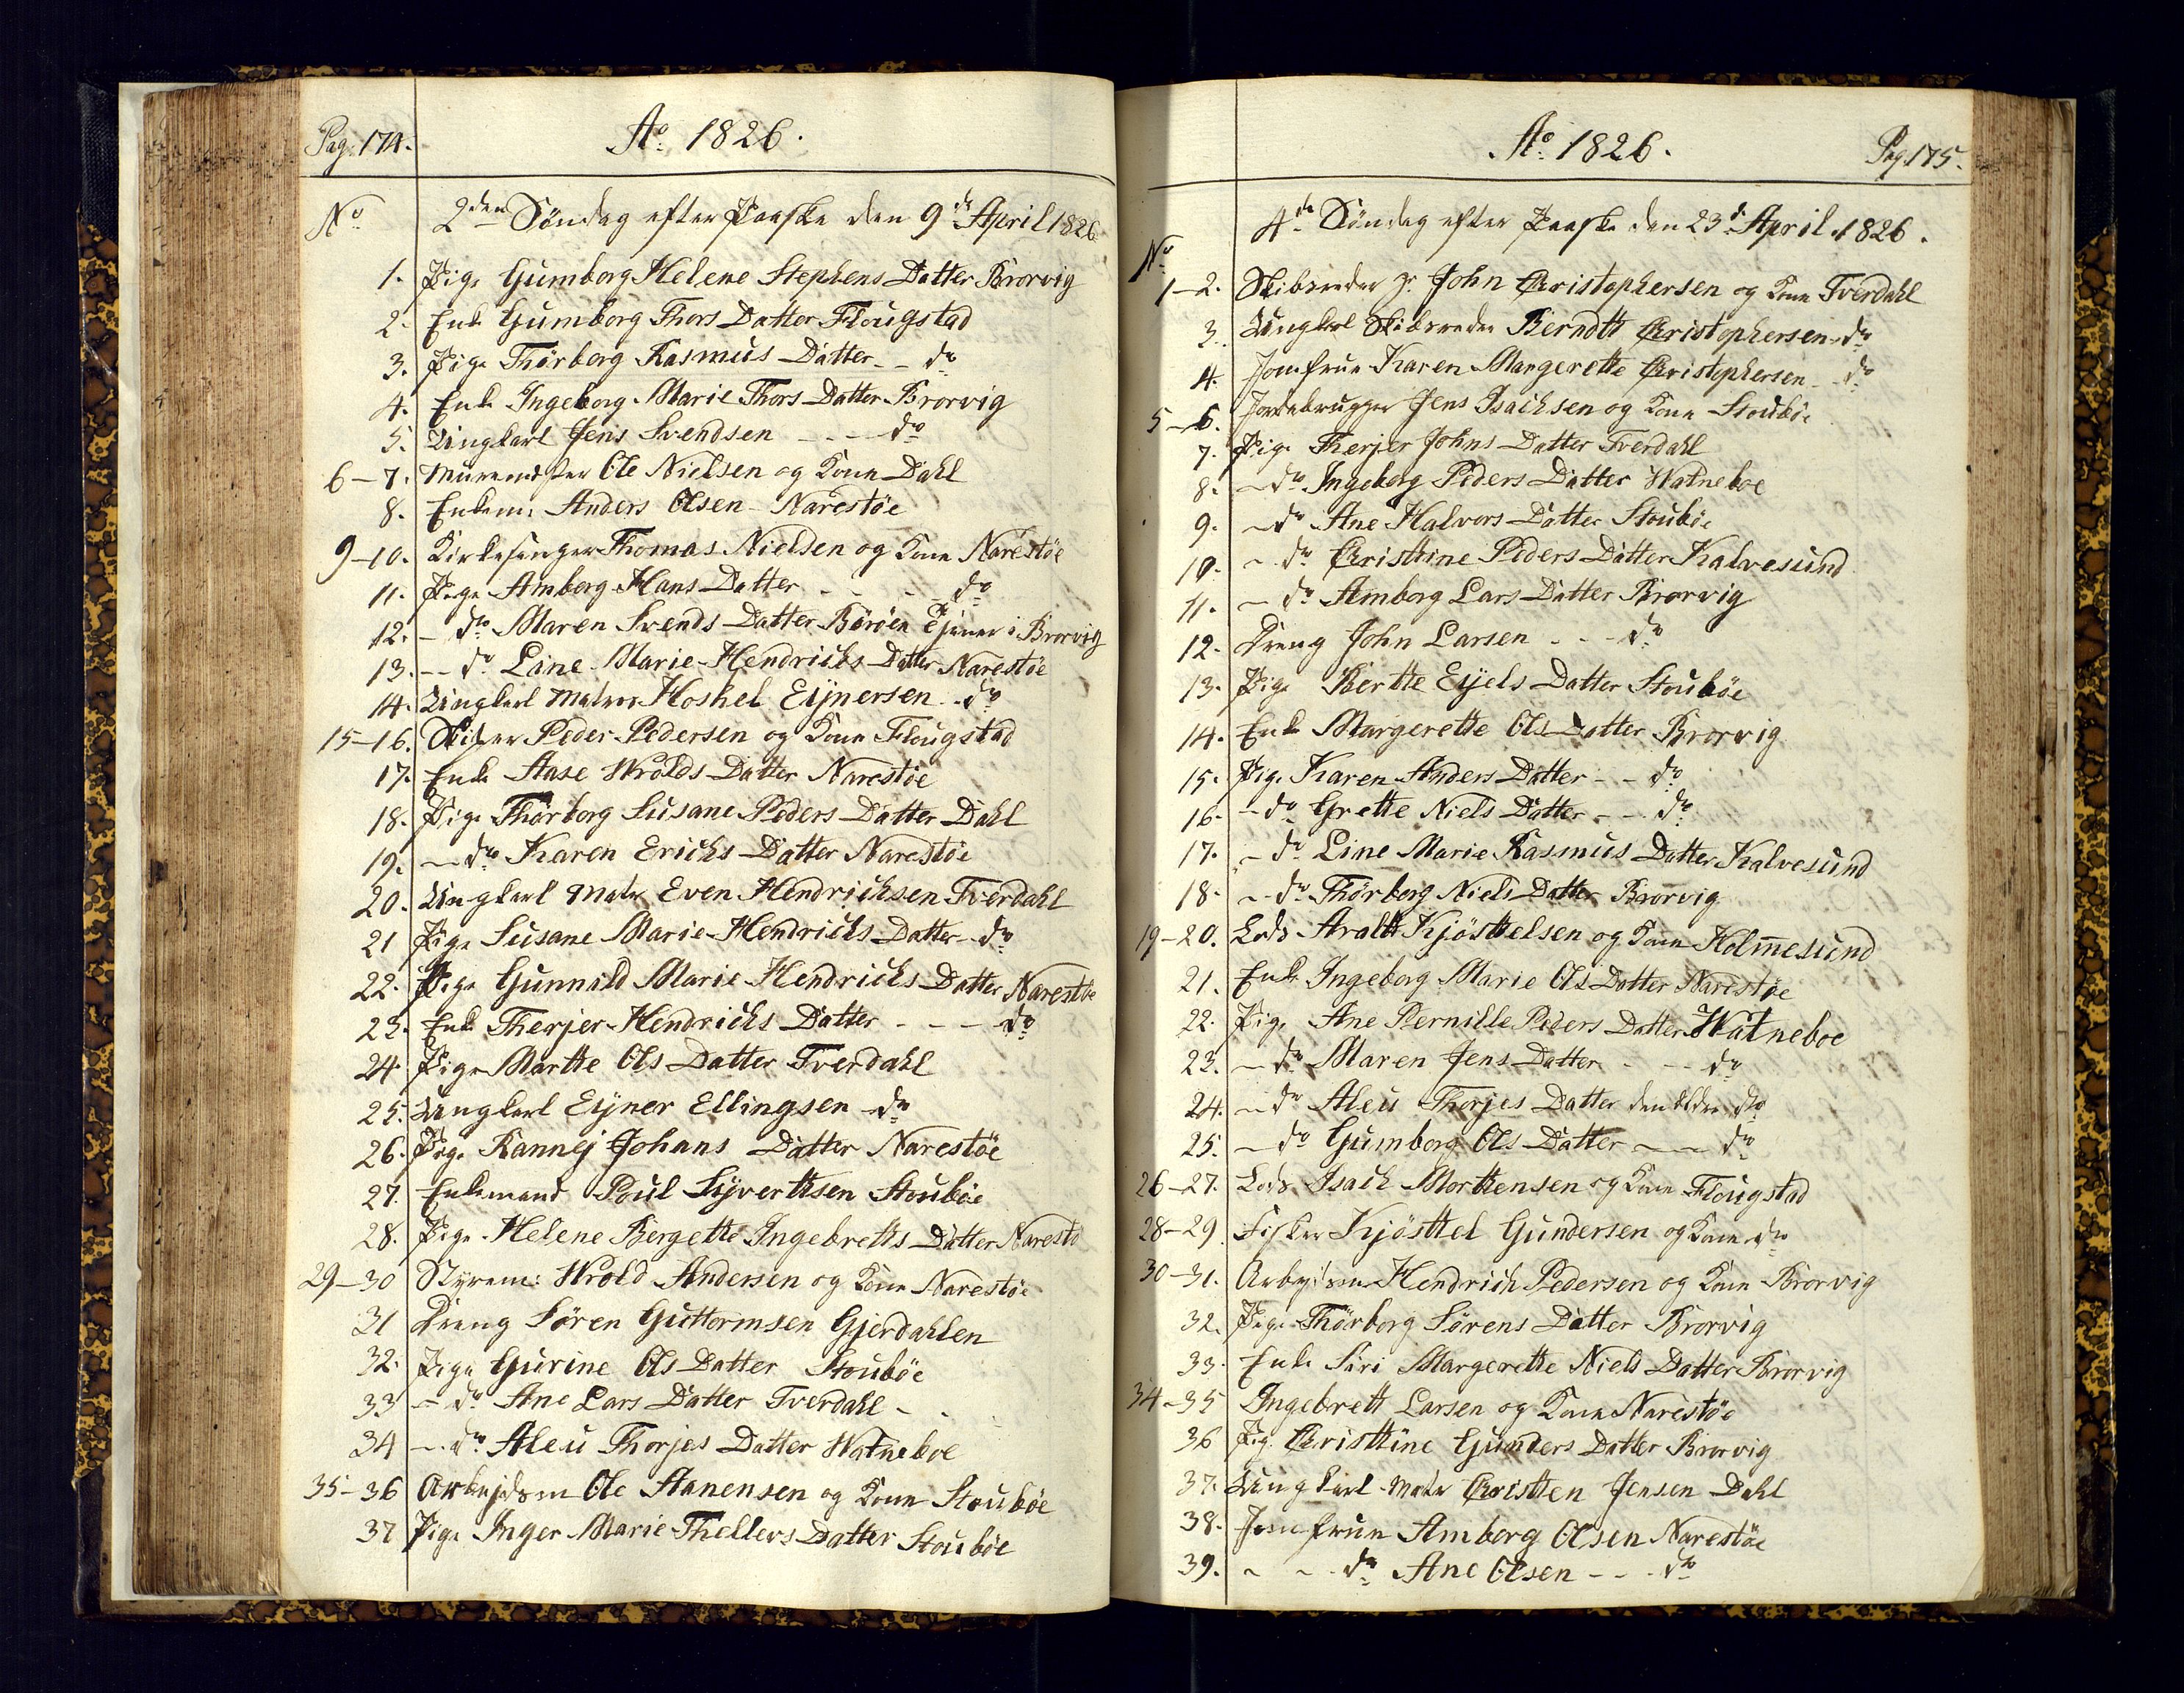 Pag: 174.
Ao. 1826.
No
2den Söndag efter Paaske den 9de April 1826
1. Pige Gumborg Helene Stephens Datter Brorvig
2. Enke Gumborg Thors Datter Flougstad
3. Pige Thörborg Rasmus Datter - - do
4. Enke Ingeborg Marie Thors Datter Brorvig
5. Ungkarl Jens Svendsen - - - do
6-7. Murmester Ole Nielsen og Kone Dahl
8. Enkem: Anders Olsen Narestöe
9-10. Kirkesanger Thomas Nielsen og Kone Narestöe
11. Pige Amborg Hans Datter - - - do
12. - do Maren Svends Datter Böröen tjener i Brorvig
13. - do Line Marie Hendrichs Datter Narestöe
14. Ungkarl Matros Hoskel Eijnersen - do
15-16. Skiper Peder Pedersen og Kone Flougstad
17. Enke Aase Wrolds Datter Narestöe
18. Pige Thörborg Susane Peders Datter Dahl
19. - do Karen Erichs Datter Narestöe
20. Ungkarl Matr Even Hendrichsen Tverdahl
21 Pige Susane Marie Hendrichs Datter - do
22. Pige Gunnild Marie Hendrichs Datter Narestöe
23. Enke Therjer Hendrichs Datter - - - do
24 Pige Martte Ols Datter Tverdahl
25. Ungkarl Eijner Ellingsen - do
26. Pige Rannej Johans Datter Narestöe
27. Enkemand Poul Sijvertsen Stouböe
28. Pige Helene Bergette Ingebretts Datter Narestö
29-30 Styrem: Wrold Andersen og Kone Narestöe
31 Dreng Sören Guttormsen Gjerdahlen
32. Pige Gurine Ols Datter Stouböe
33 - do Ane Lars Datter Tverdahl - -
34 - do Aleu Thorjes Datter Watneboe
35-36 Arbejdsm Ole Aanensen og Kone Stouböe
37 Pige Inger Marie Thellevs Datter Stouböe
Ao. 1826.
Pag. 175.
4de Söndag efter Paaske den 23de April 1826.
No
1-2. Skibsreder John Christophersen og Kone Tverdahl
3. Ungkarl Skibsreder Berndtt Christophersen - do
4. Jomfrue Karen Margerette Christophersen - do
5-6. Jordebrugger Jens Isachsen og Kone Stouböe
7. Pige Therjer Johns Datter Tverdahl
8. - do Ingeborg Peders Datter Watneboe
9. - do Ane Halvors Datter Stouböe
10. - do Christtine Peders Datter Kalvesund
11. - do Amborg Lars Datter Brorvig
12. Dreng John Larsen - - - do
13. Pige Bertte Eijels Datter Stouböe
14. Enke Margerette Ols Datter Brorvig
15. Pige Karen Anders Datter - - do
16. - do Grette Niels Datter - - do
17. - do Line Marie Rasmus Datter Kalvesund
18. - do Thörborg Niels Datter Brorvig
19-20. Lods Araltt Kjösttelsen og Kone Holmesund
21. Enke Ingeborg Marie Ols Datter Narestöe
22. Pige Ane Pernille Peders Datter Watneboe
23. - do Maren Jens Datter - - - do
24. - do Aleu Thorjes Datter den ældre do
25. - do Gumborg Ols Datter - - do
26-27. Lods Isach Morttensen og Kone Flougstad
28-29. Fisker Kjösttel Gundersen og Kone do
30-31. Arbejdsm Hendrich Pedersen og Kone Brorvig
32. Pige Thörborg Sörens Datter Brorvig
33. Enke Siri Margerette Niels Datter Brorvig
34-35 Ingebrett Larsen og Kone Narestöe
36 Pig. Christtine Gunders Datter Brorvig
37. Ungkarl Matr Christten Jensen Dahl
38. Jomfrue Amborg Olsen Narestöe
39. - - do Ane Olsen - - - do